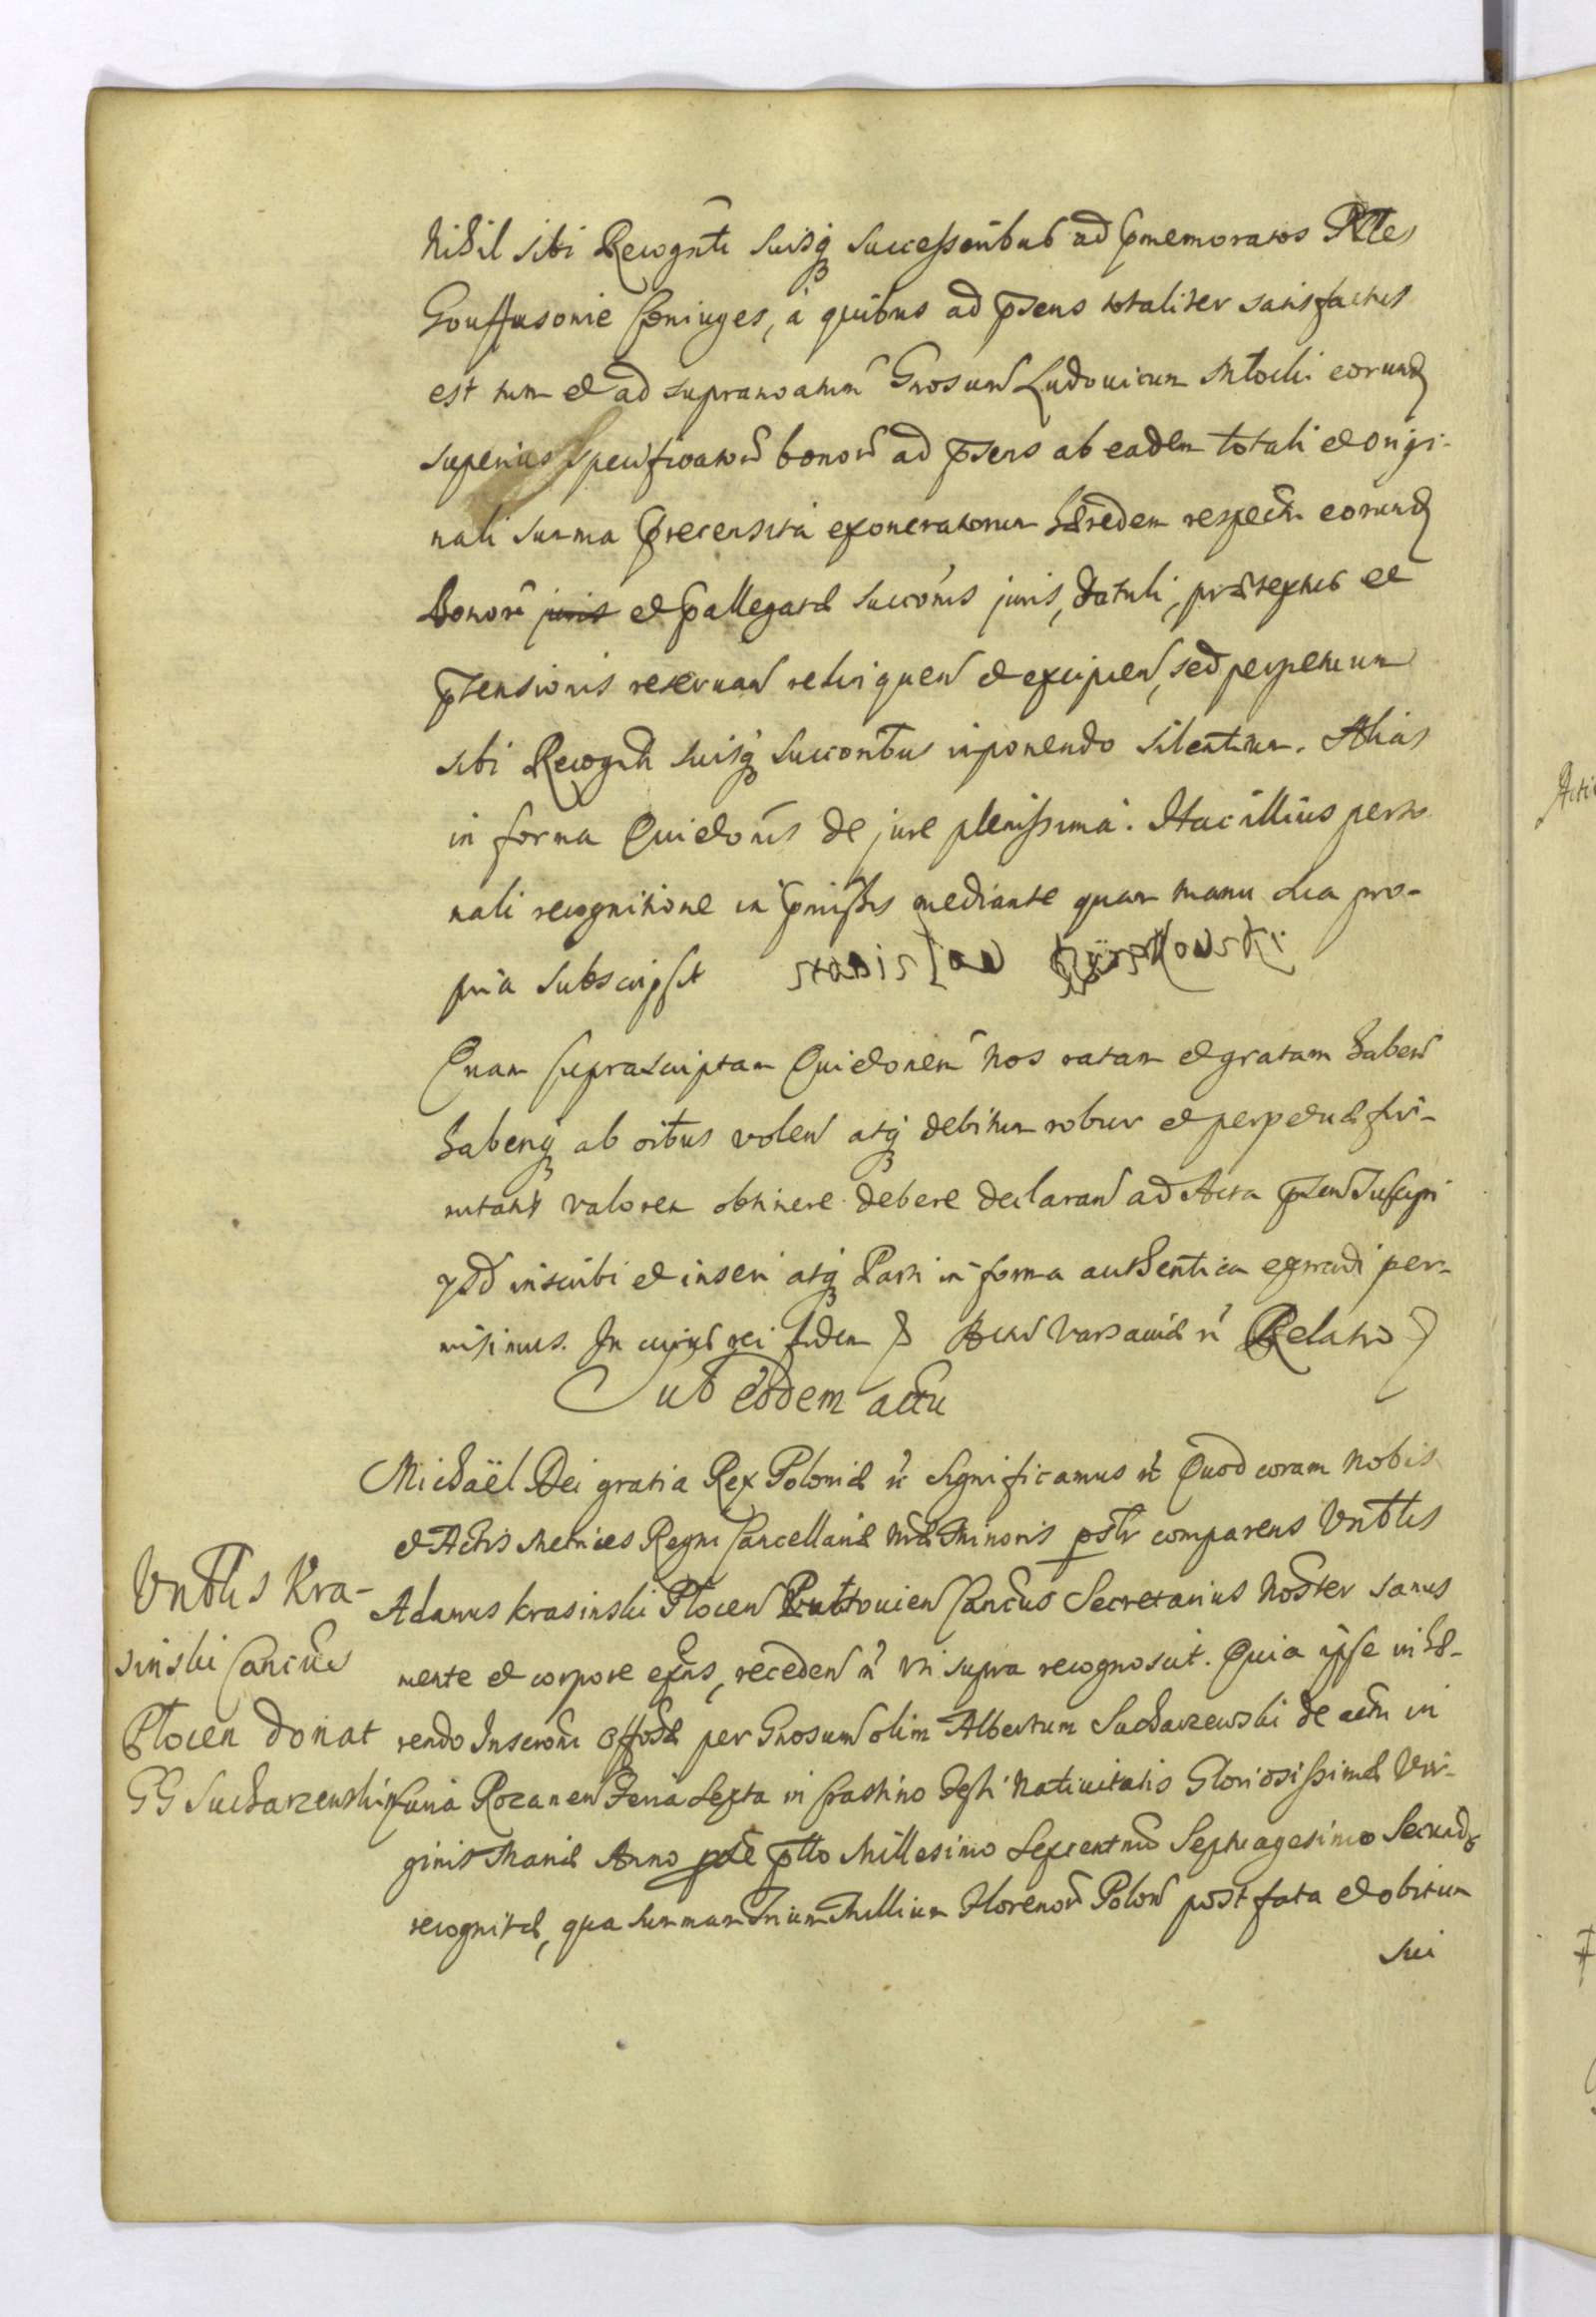 Nihil sibi Recognti suisq successoribus ad pmemoratos
Coniuges, à quibus ad psens totaliter satisfactus
est tum et ad supranoatum Gnosum Ludouicum Młocki eorund
superius specificatoru bonoru ad psens ab eadem totali et origi-
nali summa precensita exoneratorum Hæredem respectu eorund
bonoru juris et pallegatæ succonis juris, tituli, prætextus et
ptensionis reseruan relinquen et excipien, sed perpetuum
sibi Recognti suisq succoribus imponendo silentium. Alias
in forma Quietonis de jure plenissima. Hac illius perso
nali recognitione in pmissis mediante quam manu sua pro-
pria subscripsit Stanislaw
Quam suprascriptam Quietonem Nos ratam et gratam haben
haberiq ab oibus volen atq debitum robur et perpetuæ firi-
mitatis valorem obtinere debere declaran ad Acta psen Suscipi
inscribi et inseri atq Parti in forma authentica extradi per-
misimus. In cujus rei fidem Actum Varsauiæ Relatio
Sub eodem actu
Michaël Dei gratia Rex Poloniæ significamus Quod coram Nobis
et Actis Metrices Regni Cancellariæ Nræ Minoris psltr comparens Vnblis
Adamus Krasinski Plocen Pultouien Cancus Secretarius Noster sanus
mente et corpore exns, receden vti supra recognoscit. Quia ipse inhæ-
rendo Inscroni per Gnosum olim Albertum Sucharzewski de actu in
Curia Rozanen Feria Sexta in Crastino Festi Natiuitatis Gloriosissimæ Vir-
ginis Mariæ Anno Millesimo Sexcentmo Septuagesimo Secundo
recognitæ, qua summam Trium Millium Florenoru Polon post fata et obitum
sui
Vnblis Kra-
sinski Cancus
Plocen donat
GG Sucharzewskim